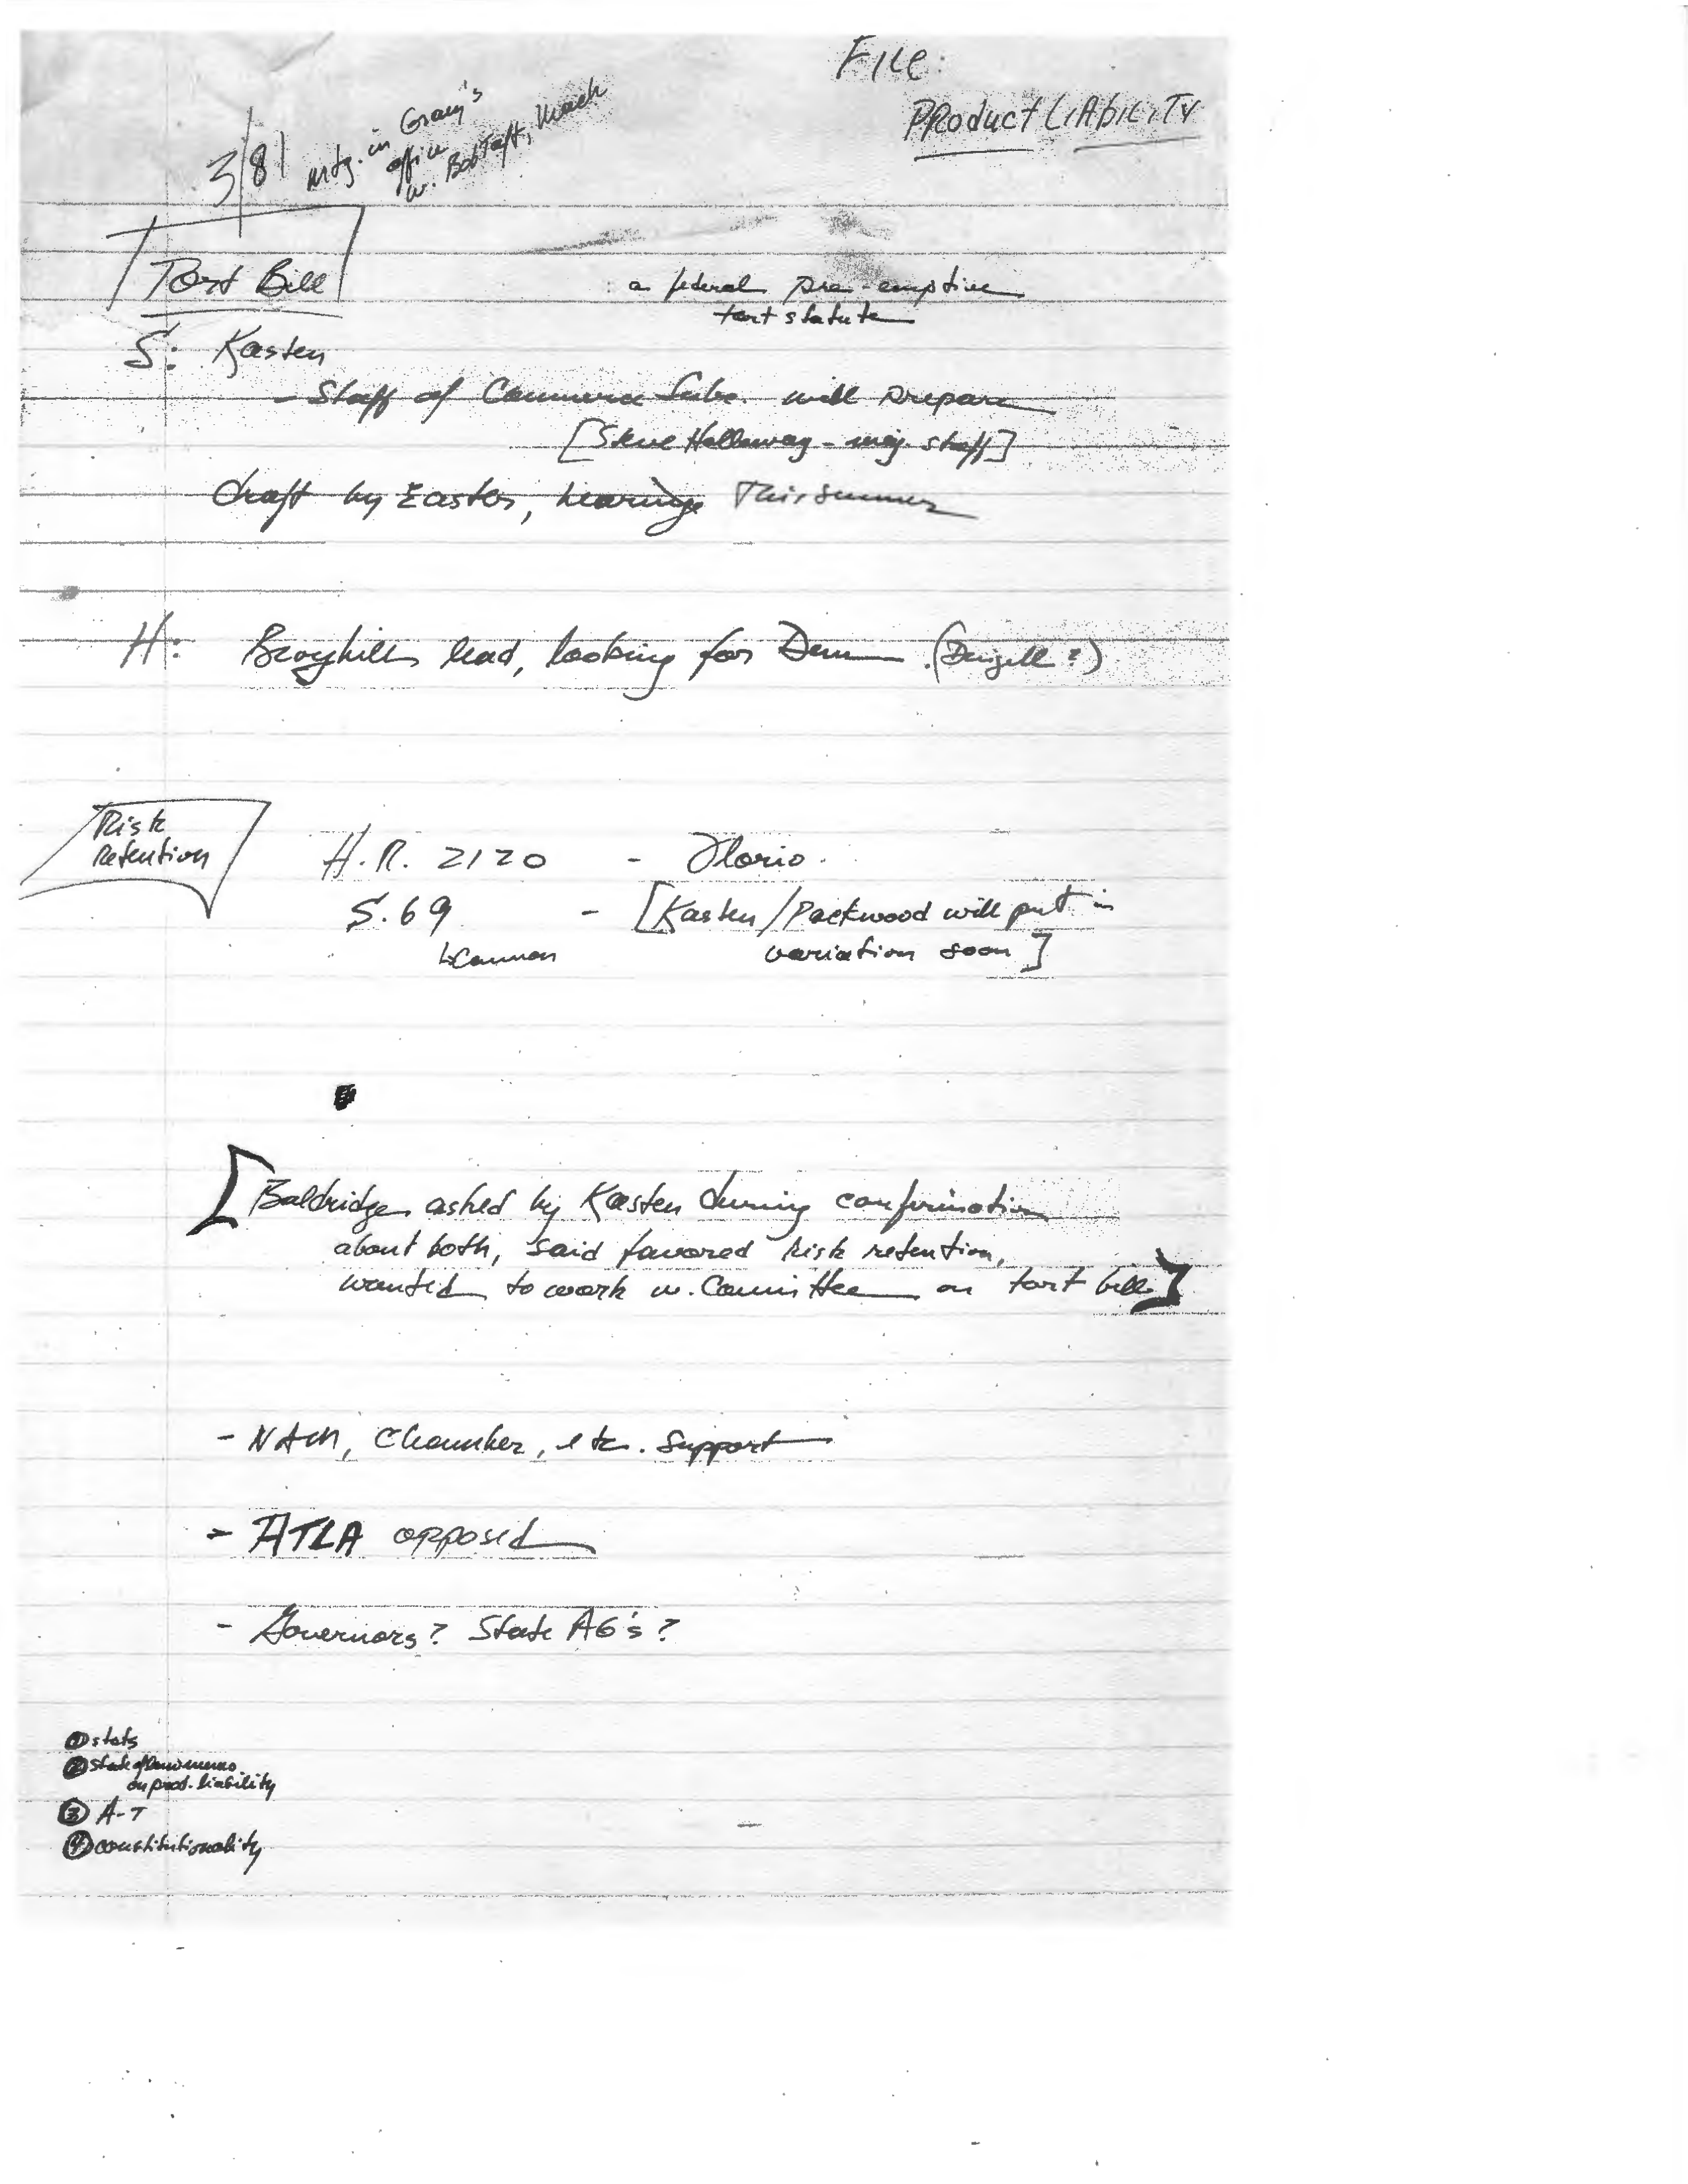 File:
Product Liability
3/81 mtg. in Gray's
office
w. Bob Taft,
Tort Bill
a federal pre-emptive
tort statute
S: Kasten
- Staff of Commerce Subc. will prepare
[Steve Halloway - maj. staff]
draft by Easter, hearings this summer
H: Broyhill lead, looking for Dem. (Dingell?)
Risk
Retention
H.R. 2120 - Florio.
S. 69 - [Kasten/Packwood will put in
↳Cannon variation soon]
[Baldridge asked by Kasten during confirmation
about both, said favored risk retention,
wanted to work w. Committee on tort bill]
- NAM, Chamber, etc. support
- ATLA opposed
- Governors? State AG's?
① stats
② state of law memo
on prod. liability
③ A-T
④ constitutionality